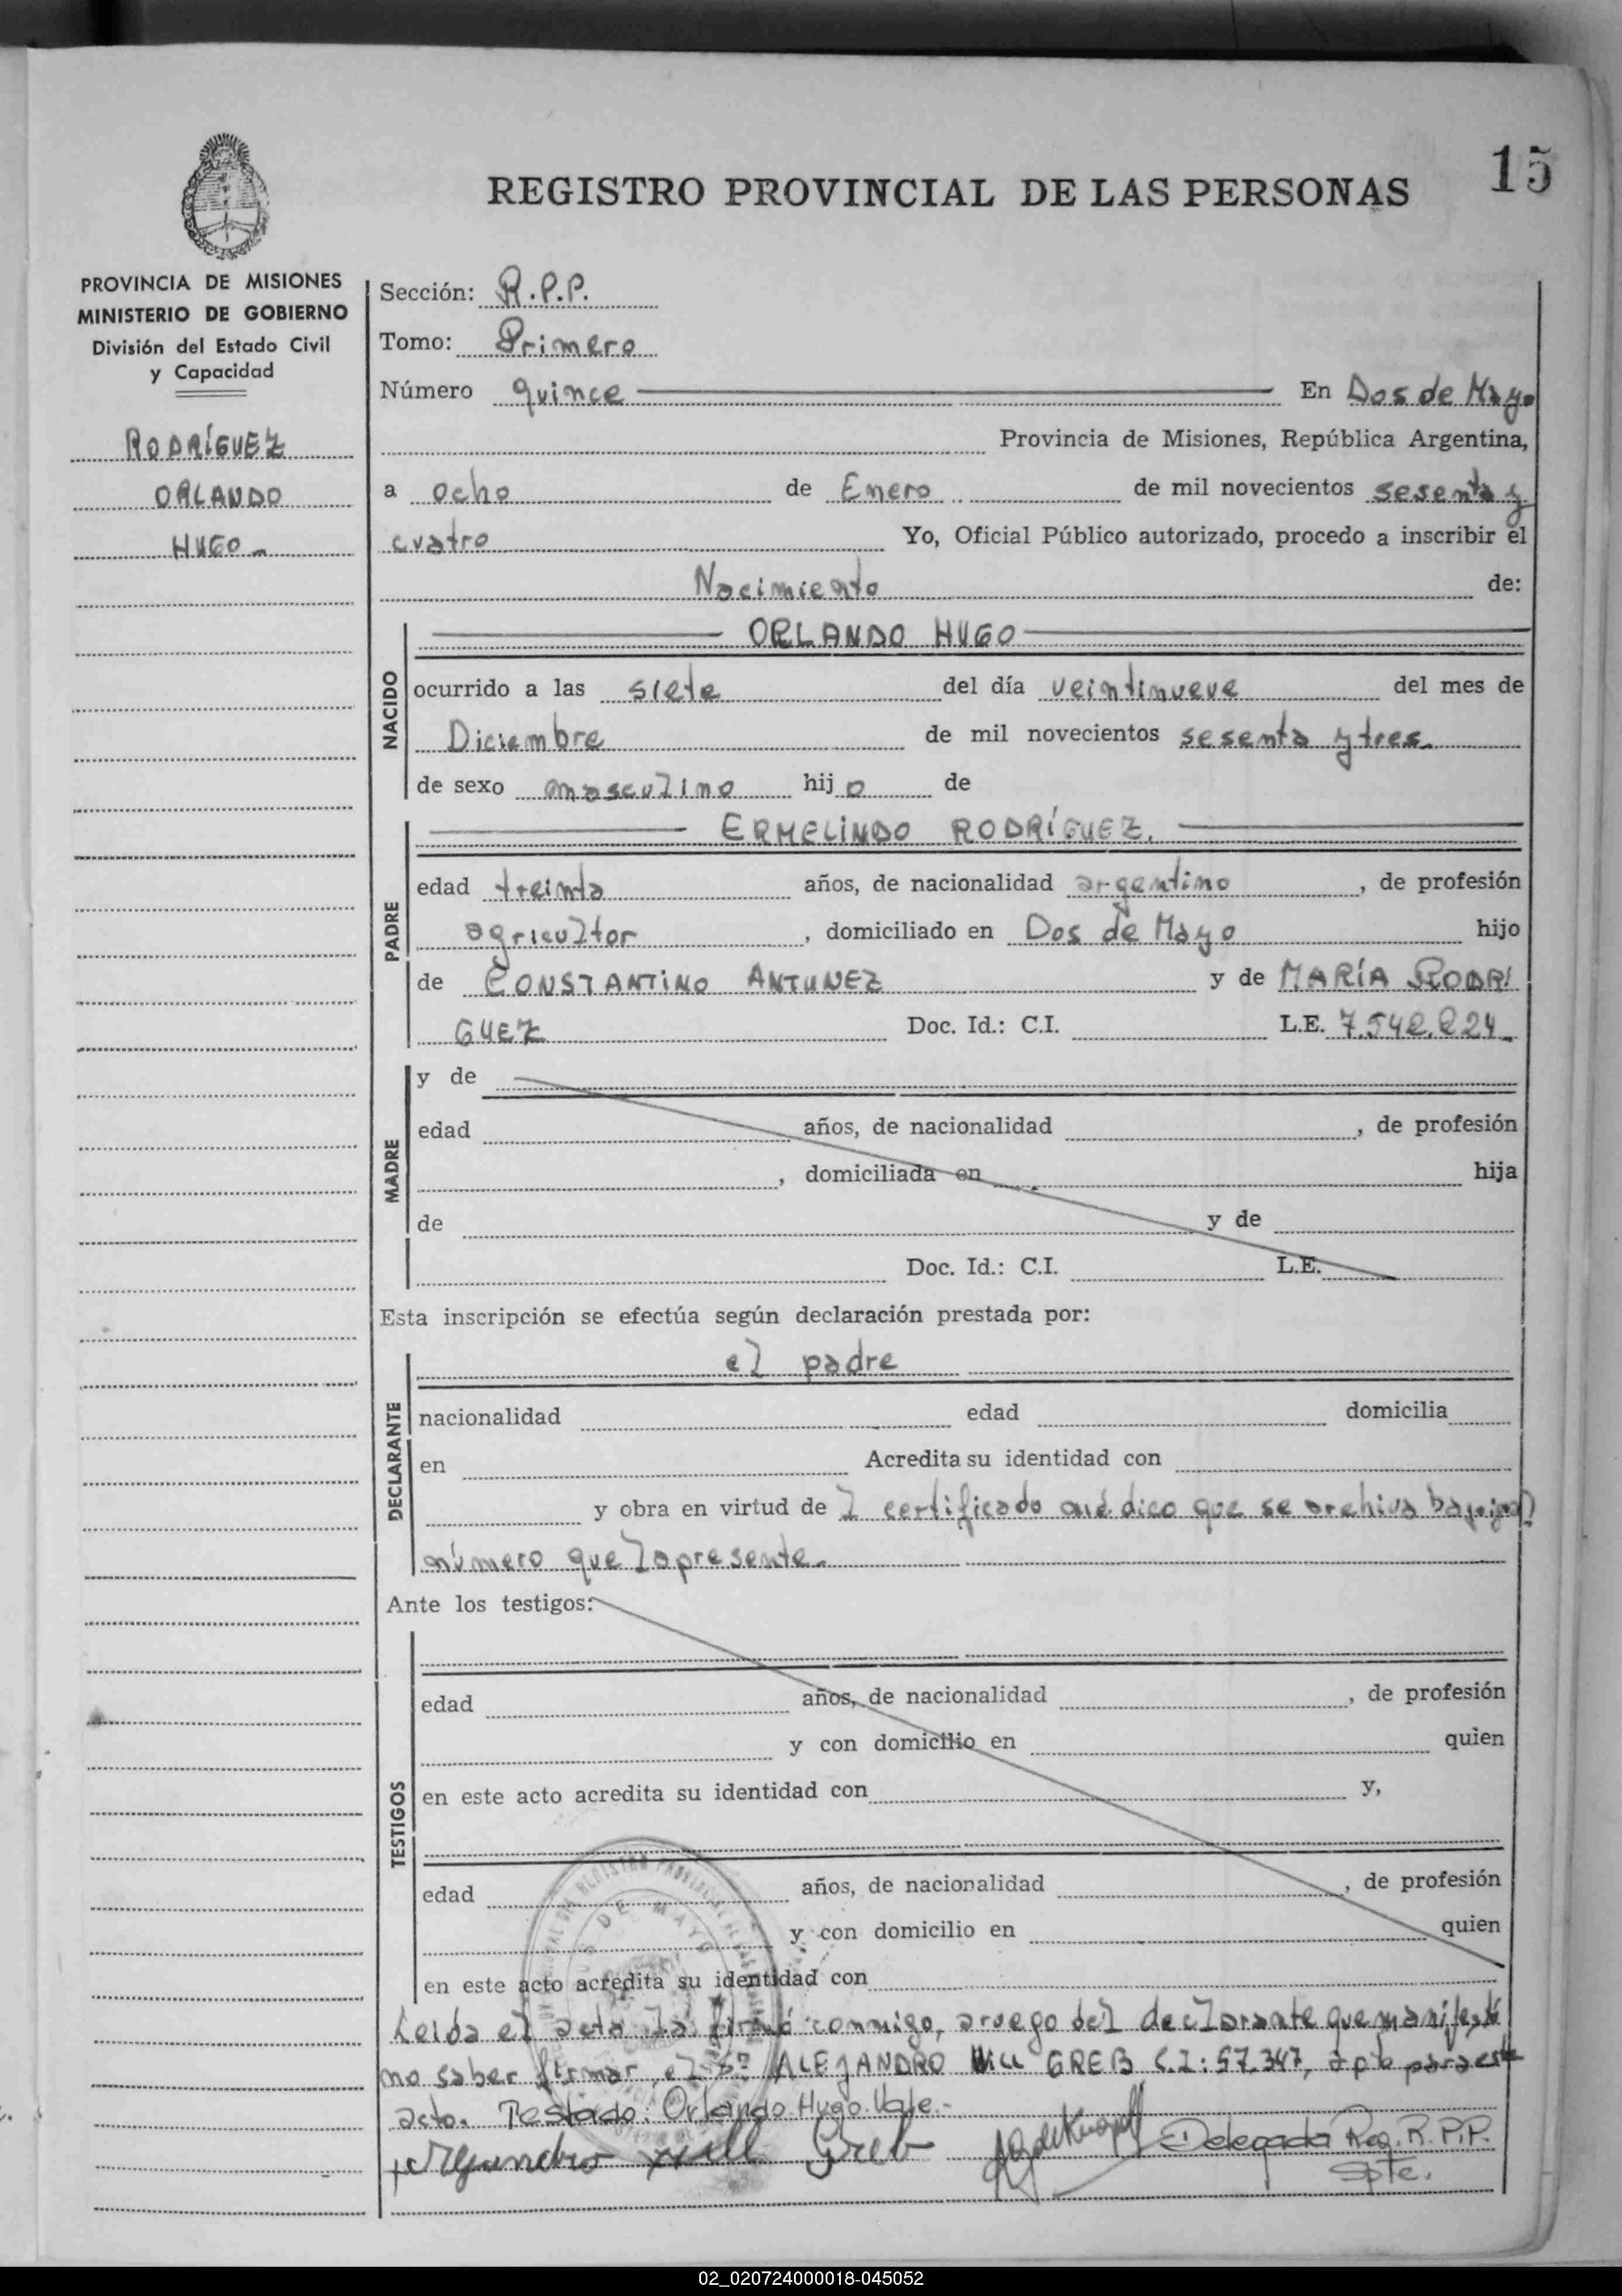 15
REGISTRO PROVINCIAL DE LAS PERSONAS
PROVINCIA DE MISIONES
MINISTERIO DE GOBIERNO
División del Estado Civil
y Capacidad
RODRÍGUEZ
ORLANDO
HUGO
Sección: R.P.P.
Tomo: Primero
Número quince En Dos de Mayo
Provincia de Misiones, República Argentina,
a ocho de Enero de mil novecientos sesenta y
cuatro Yo, Oficial Público autorizado, procedo a inscribir el
Nacimiento de:
NACIDO
ORLANDO HUGO
ocurrido a las siete del día veintinueve del mes de
Diciembre de mil novecientos sesenta y tres.
de sexo masculino hijo de
PADRE
ERMELINDO RODRÍGUEZ.
edad treinta años, de nacionalidad argentino, de profesión
agricultor, domiciliado en Dos de Mayo hijo
de CONSTANTINO ANTUNEZ y de MARÍA RODRI
GUEZ Doc. Id.: C.I. L.E. 7.542.224
MADRE
y de
edad años, de nacionalidad , de profesión
, domiciliada en hija
de y de
Doc. Id.: C.I. L.E.
Esta inscripción se efectúa según declaración prestada por:
DECLARANTE
el padre
nacionalidad edad domicilia
en Acredita su identidad con
y obra en virtud de 1 certificado médico que se archiva bajo igual
número que la presente.
Ante los testigos:
TESTIGOS
edad años, de nacionalidad , de profesión
y con domicilio en quien
en este acto acredita su identidad con y,
edad años, de nacionalidad , de profesión
y con domicilio en quien
en este acto acredita su identidad con
Leída el acta la firmó conmigo, a ruego del declarante que manifestó
no saber firmar, el Sr. ALEJANDRO Will GREB C.I: 57.347, apto para este
acto. Testado: Orlando Hugo. Vale.-
Alejandro Will Greb Delegada Reg. R.P.P.
Spte.
DOS DE MAYO
02_020724000018-045052